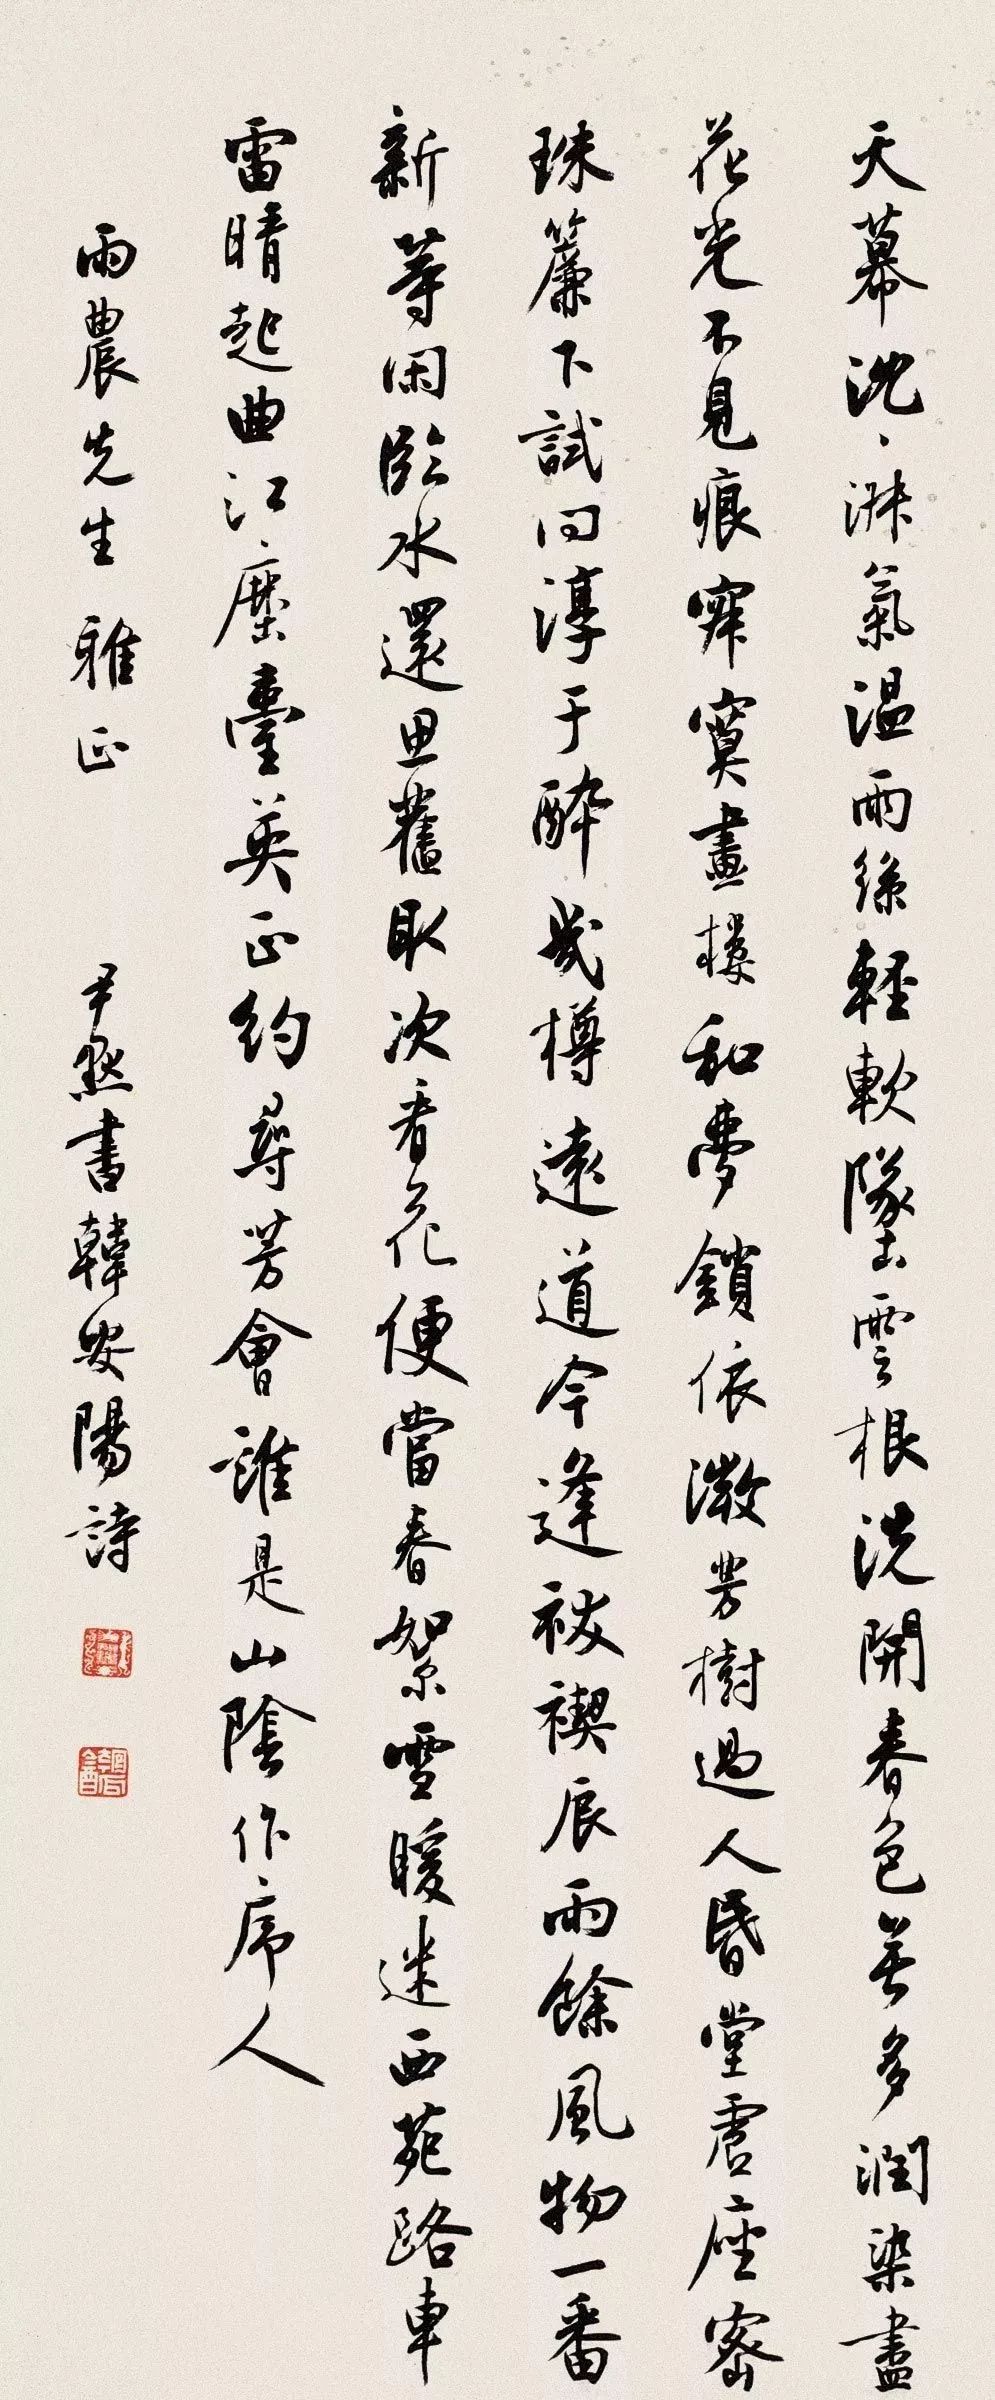 天幕沈〻淑氣温雨絲輕軟墜雲根洗開春色無多潤染盡
花光不見痕寂寞畫樓和夢鎖依微芳樹過人昏堂虛座密
珠簾下試問淳于醉幾樽遠道今逢祓禊辰雨餘風物一番
新等閑臨水還思舊取次看花便當春絮雪暖迷西苑路車
雷晴起曲江塵臺英正約尋芳會誰是山陰作序人
雨農先生雅正 尹默書韓安陽詩